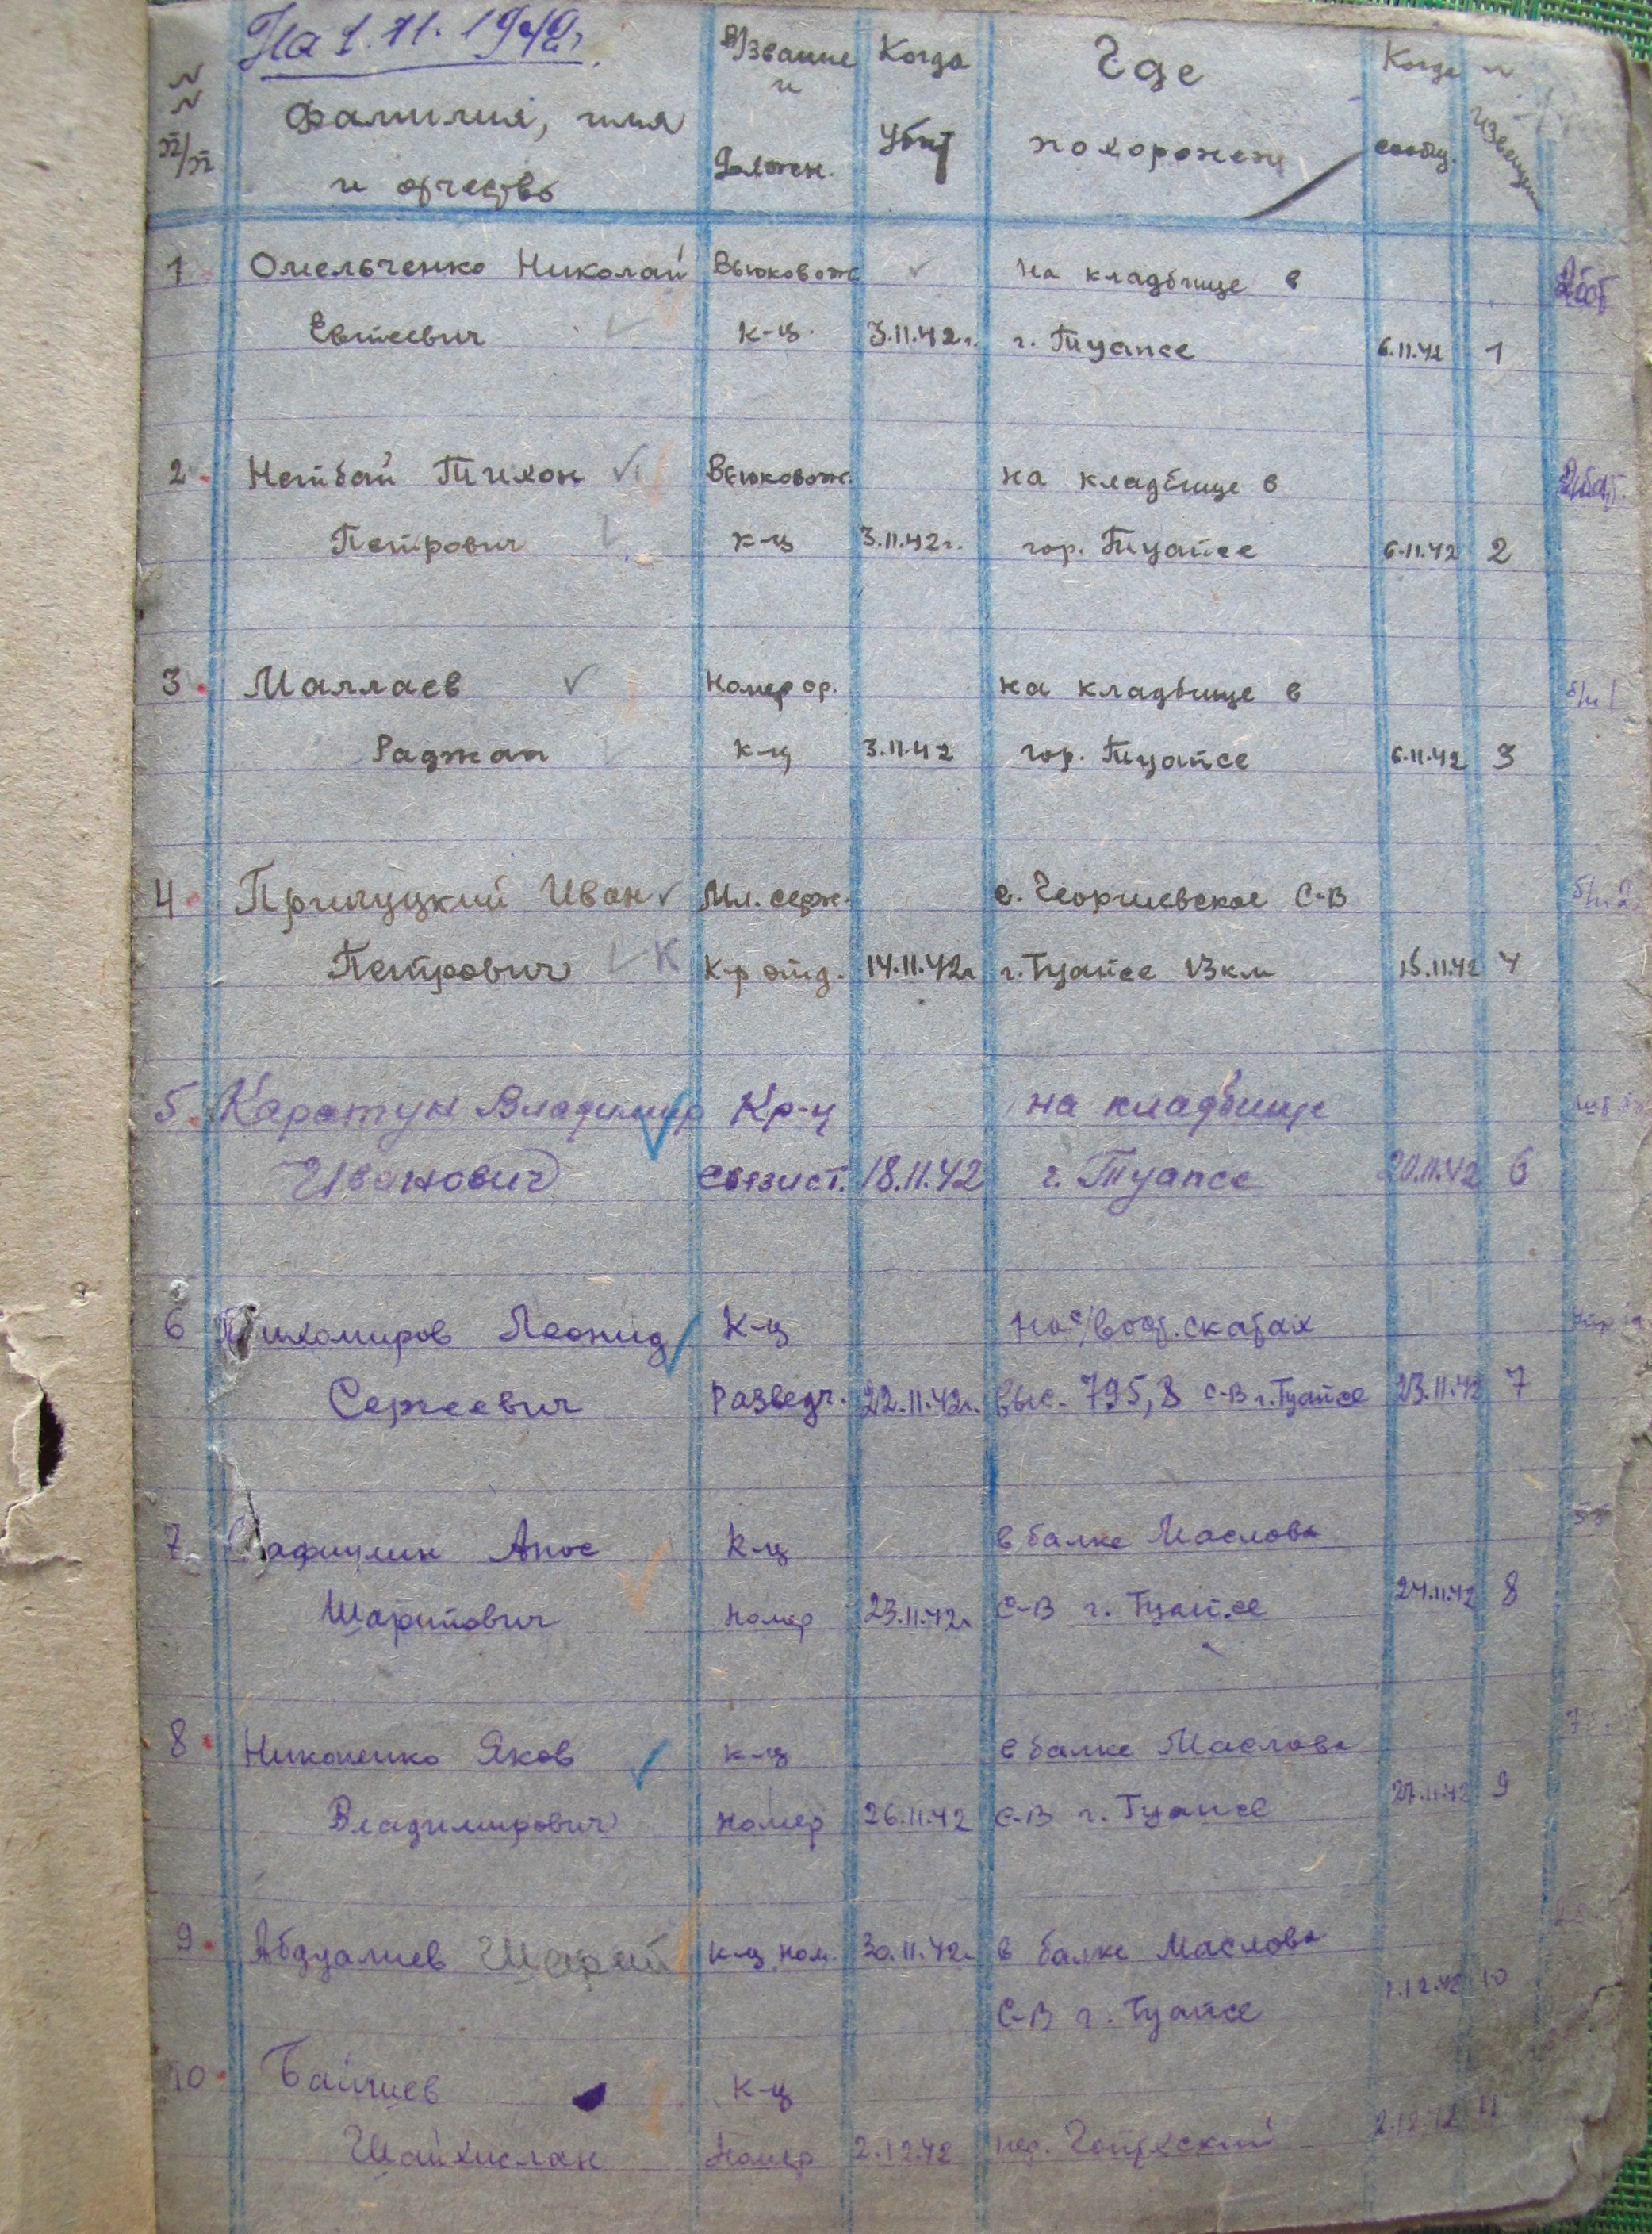 На 1.11.1942г.
№№ п/п Фамилия, имя и отчество Звание и должн. Когда убит Где похоронен Когда сообщ. № извещения
1 Омельченко Николай Вьюковож. на кладбище в
Евтеевич к-ц. 3.11.42г. г. Туапсе 6.11.42 1
2. Нетбай Тихон Вьюковож. на кладбище в
Петрович к-ц 3.11.42г. гор. Туапсе 6.11.42 2
3. Маллаев Номер ор. на кладбище в
Раджап к-ц 3.11.42 гор. Туапсе 6.11.42 3
4. Прилуцкий Иван Мл. серж. с. Георгиевское С-В
Петрович К К-р отд. 14.11.42г г. Туапсе 13 км 15.11.42 4
5. Каратун Владимир Кр-ц на кладбище
Иванович связист. 18.11.42 г. Туапсе 20.11.42 6
6 Тихомиров Леонид К-ц на с/вост. скатах
Сергеевич Разведч. 22.11.42г. выс. 795,8 С-В г. Туапсе 23.11.42 7
7. Анос К-ц в балке Маслова
Шарипович номер 23.11.42г С-В г. Туапсе 24.11.42 8
8. Никоненко Яков к-ц в балке Маслова
Владимирович номер 26.11.42 С-В г. Туапсе 27.11.42 9
9. Абдуалиев к-ц ном. 30.11.42г. в балке Маслова
С-В г. Туапсе 1.12.42 10
10. к-ц
Шайхислан Номер 2.12.42 пер. Гойтхский 2.12.42 11